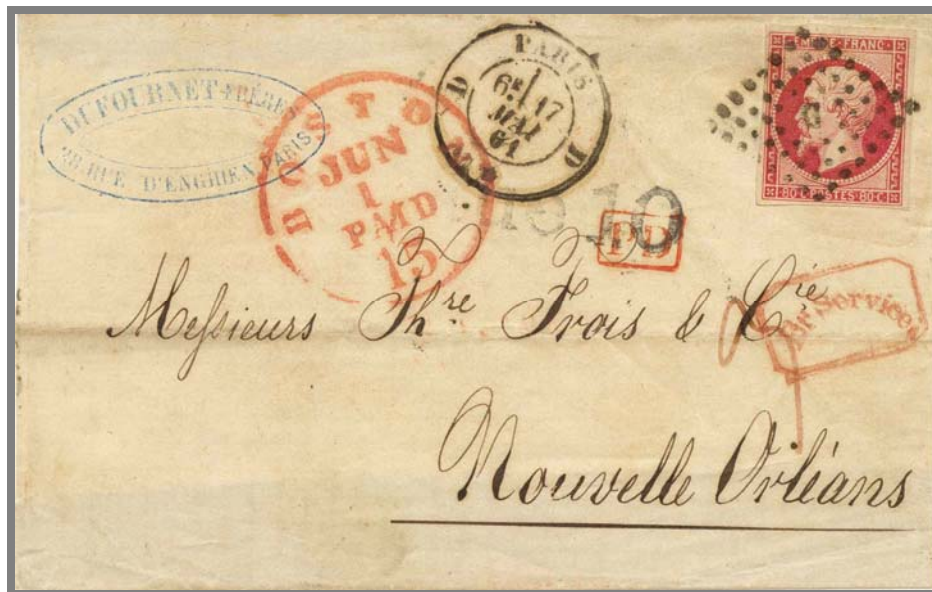 DUFOURNET FRÈRES
28. RUE D'ENGHIEN PARIS
BOSTON
JUN
1
PAID
15
PARIS
D D
6E
17
MAI
61
EMPIRE FRANC
80 C POSTES 80 C
10
PD
Br Service
Messieurs Thre Frois & Cie
Nouvelle Orléans